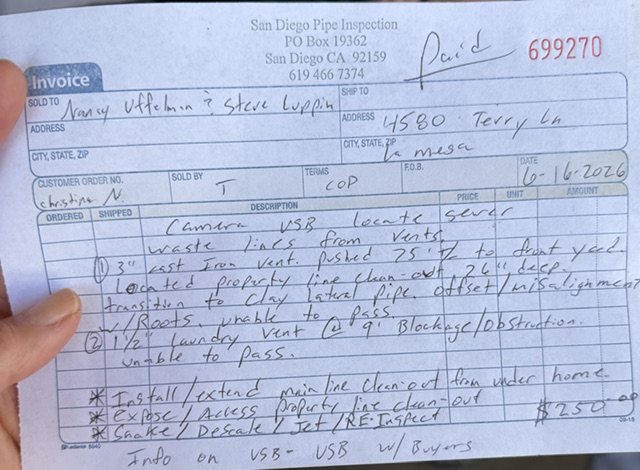 San Diego Pipe Inspection
PO Box 19362
San Diego CA 92159
619 466 7374
Paid
699270
Invoice
SOLD TO Nancy Uffelman & Steve Luppin
SHIP TO
ADDRESS
ADDRESS 4580 Terry Ln
CITY, STATE, ZIP
CITY, STATE, ZIP La mesa
CUSTOMER ORDER NO. Christina N.
SOLD BY T
TERMS COD
F.O.B.
DATE 6-16-2026
ORDERED SHIPPED DESCRIPTION PRICE UNIT AMOUNT
Camera USB locate sewer
waste lines from vents.
① 3" cast Iron vent. pushed 75 ft to front yard.
Located property line clean-out 26" deep.
transition to Clay lateral pipe. offset/misalignment
w/Roots. unable to pass.
② 1½" laundry vent @ 9' Blockage/Obstruction.
unable to pass.
* Install/extend mainline clean-out from under home.
* Expose/Access property line clean-out
* Snake/Descale/Jet/RE-Inspect
$250.00
Info on USB- USB w/ Buyers